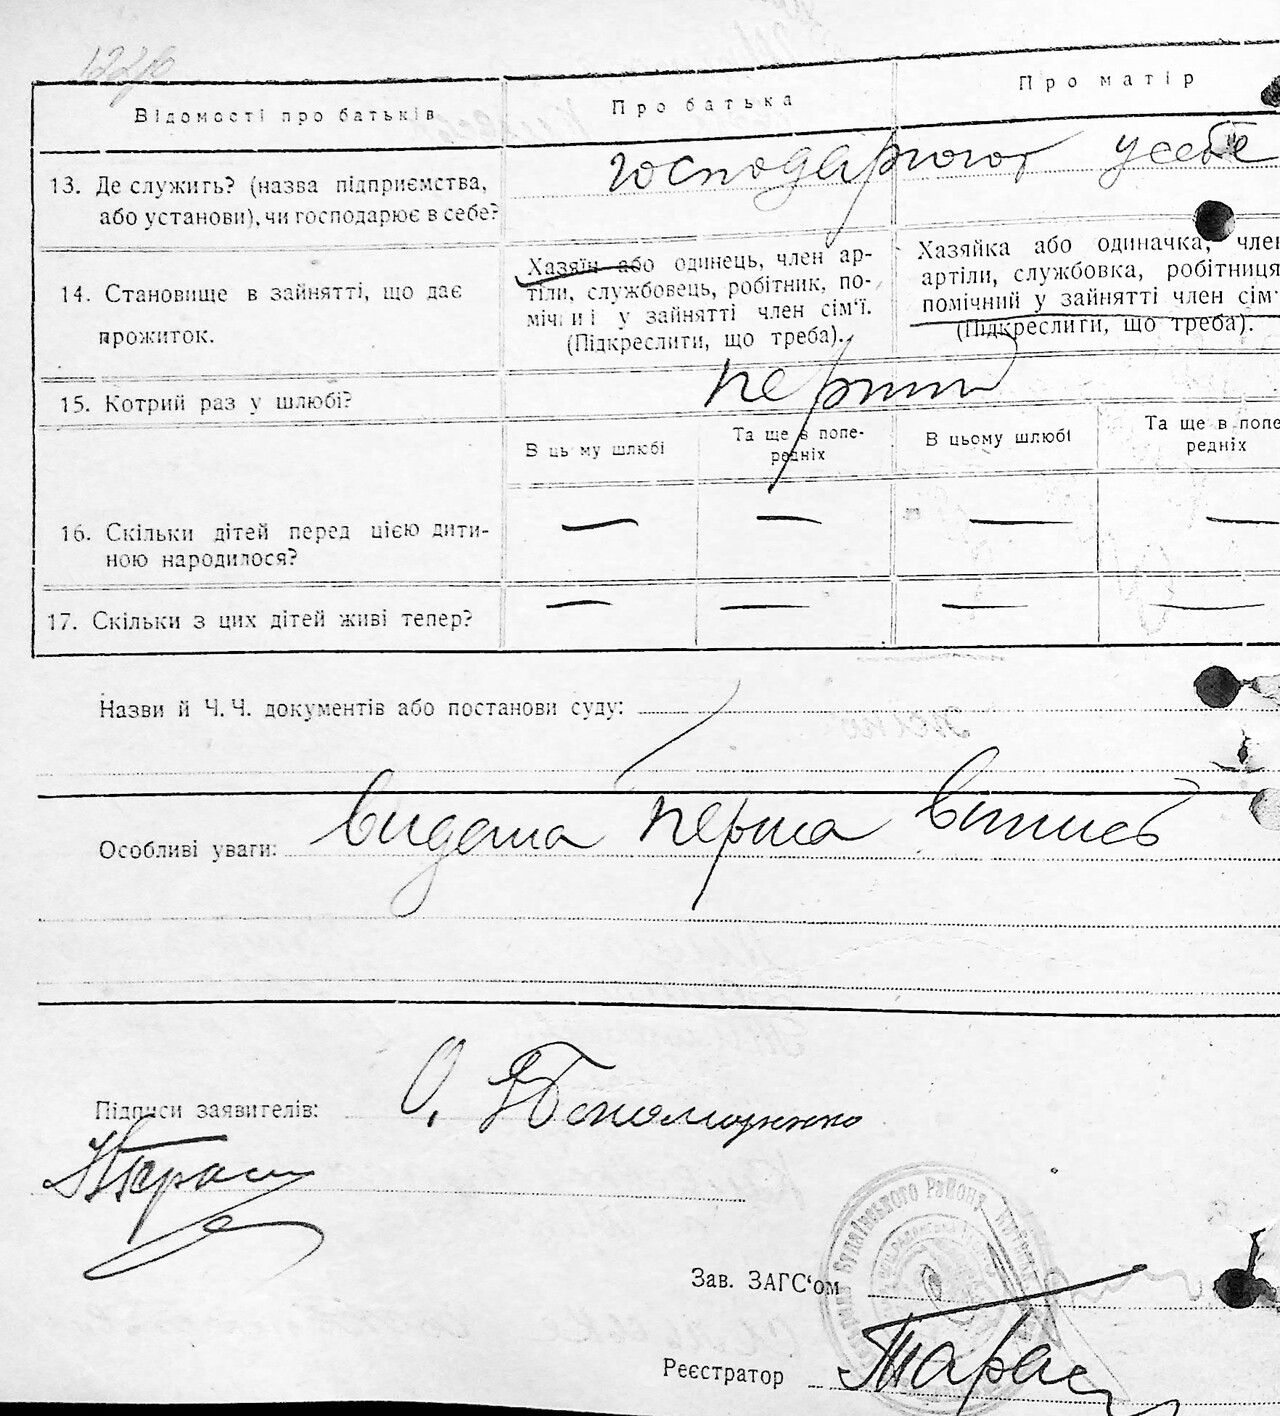 Відомості про батьків
Про батька
Про матір
13. Де служить? (назва підприємства,
або установи), чи господарює в себе?
господарюют у себе
14. Становище в зайнятті, що дає
прожиток.
Хазяїн або одинець, член ар-
тіли, службовець, робітник, по-
мічниі у зайнятті член сім'ї.
(Підкреслити, що треба).
Хазяйка або одиначка, член
артіли, службовка, робітниця
помічний у зайнятті член сім'
(Підкреслити, що треба).
15. Котрий раз у шлюбі?
перший
В цьому шлюбі
Та ще в попе-
редніх
В цьому шлюбі
Та ще в попе
редніх
16. Скільки дітей перед цією дити-
ною народилося?
— — — —
17. Скільки з цих дітей живі тепер?
— — — —
Назви й Ч. Ч. документів або постанови суду:
Особливі уваги: видана перша випись
Підписи заявителів: О.
Зав. ЗАГС'ом
Реєстратор Тарас